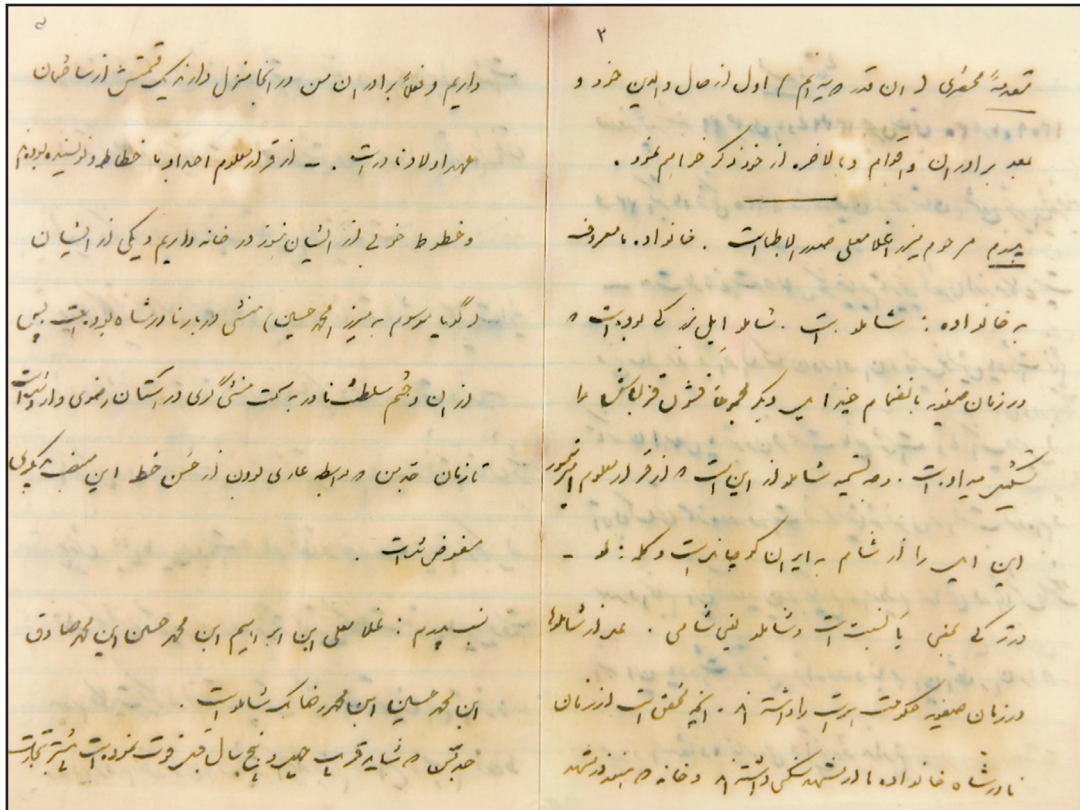 ۳
مقدمةً مختصری (ان قدر که یادم) اول از حال والدین خود و
بعد برادران و اقوام و بالاخره از خود ذکر خواهم نمود .
پدرم مرحوم میرزا غلامعلی صدرالاطباست . خانواده ما معروف
به خانواده : شاملو است . شاملو ایل بزرگی بوده است که
در زمان صفویه بانضمام چند ایل دیگر مجموعاً قشون قزلباش را
تشکیل میداده است . وجه تسمیه شاملو از این است که از قرار معلوم امیر تیمور
این ایل را از شام به ایران کوچانده است و کلمه : لو -
در ترکی بمعنی یاء نسبت است و شاملو یعنی شامی . عده از شاملوها
در زمان صفویه حکومت هرات را داشته اند . آنچه محقق است از زمان
نادرشاه خانواده ما در مشهد سکنی داشته اند و خانه که هنوز در مشهد
داریم و فعلاً برادران من در آنجا منزل دارند یک قسمتش از ساختمان
عهد اولاد نادر است . - از قرار معلوم اجداد ما خطاط و نویسنده بوده‌اند
و خطوط خوبی از ایشان هنوز در خانه داریم و یکی از ایشان
(گویا موسوم به میرزا محمد حسین) منشی دربار نادرشاه بوده است پس
از ان و ختم سلطنت نادر به سمت منشی‌گری در استان رضوی وارد شده است
تا زمان جد من که بواسطه عاری بودن از حسن خط این منصب بدیگری
مفوض شده است .
نسب پدرم : غلامعلی ابن ابراهیم ابن محمد حسین ابن محمد صادق
ابن محمد حسین ابن محمد رضا بیک شاملو است .
جد من که شاید قریب چهل و پنج سال قبل فوت نموده است بیشتر بتجارت